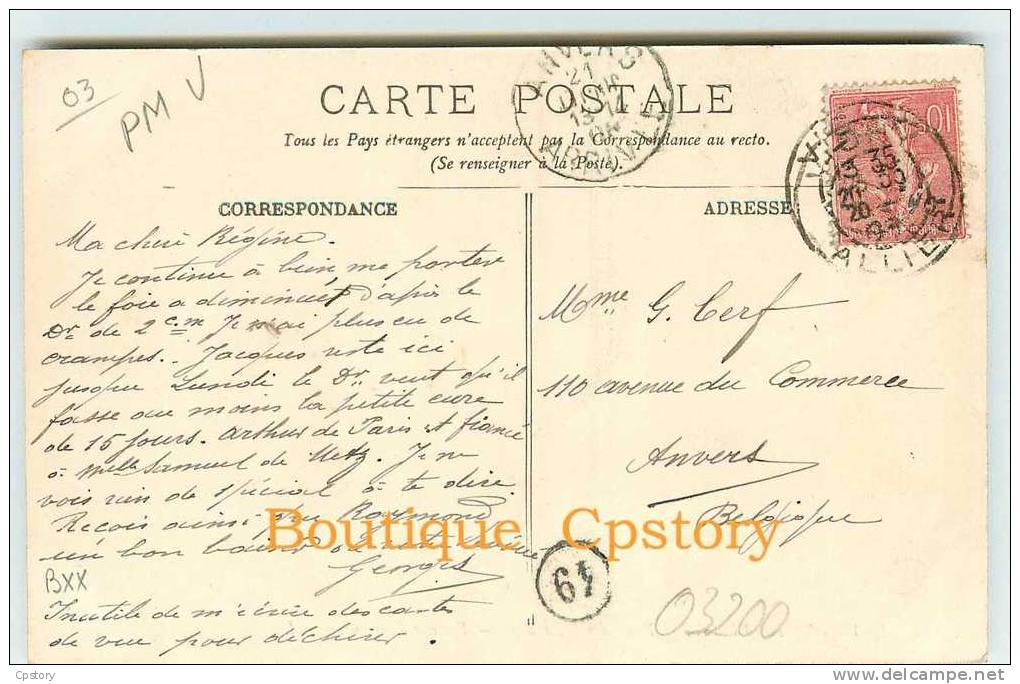 03
PM V
CARTE POSTALE
Tous les Pays étrangers n'acceptent pas la Correspondance au recto.
(Se renseigner à la Poste).
ANVERS
21
ARRIVÉE
ALLIER
10
CORRESPONDANCE
Ma chère Régine.
Je continue à bien me porter
le foie a diminué, d'après le
Dr. de 2 c.m Je n'ai plus eu de
crampes. Jacques reste ici
jusque Lundi le Dr. veut qu'il
fasse au moins la petite cure
de 15 jours. Arthur de Paris est fiancé
à Melle Samuel de Metz. Je ne
vois rien de spécial à te dire.
Reçois ainsi que Raymond
un bon baiser
Georges
BXX
Inutile de m'écrire des cartes
de vue pour déchirer.
ADRESSE
Mme G. Cerf
110 avenue du Commerce
Anvers
Belgique
Boutique Cpstory
61
03200
Cpstory
www.delcampe.net